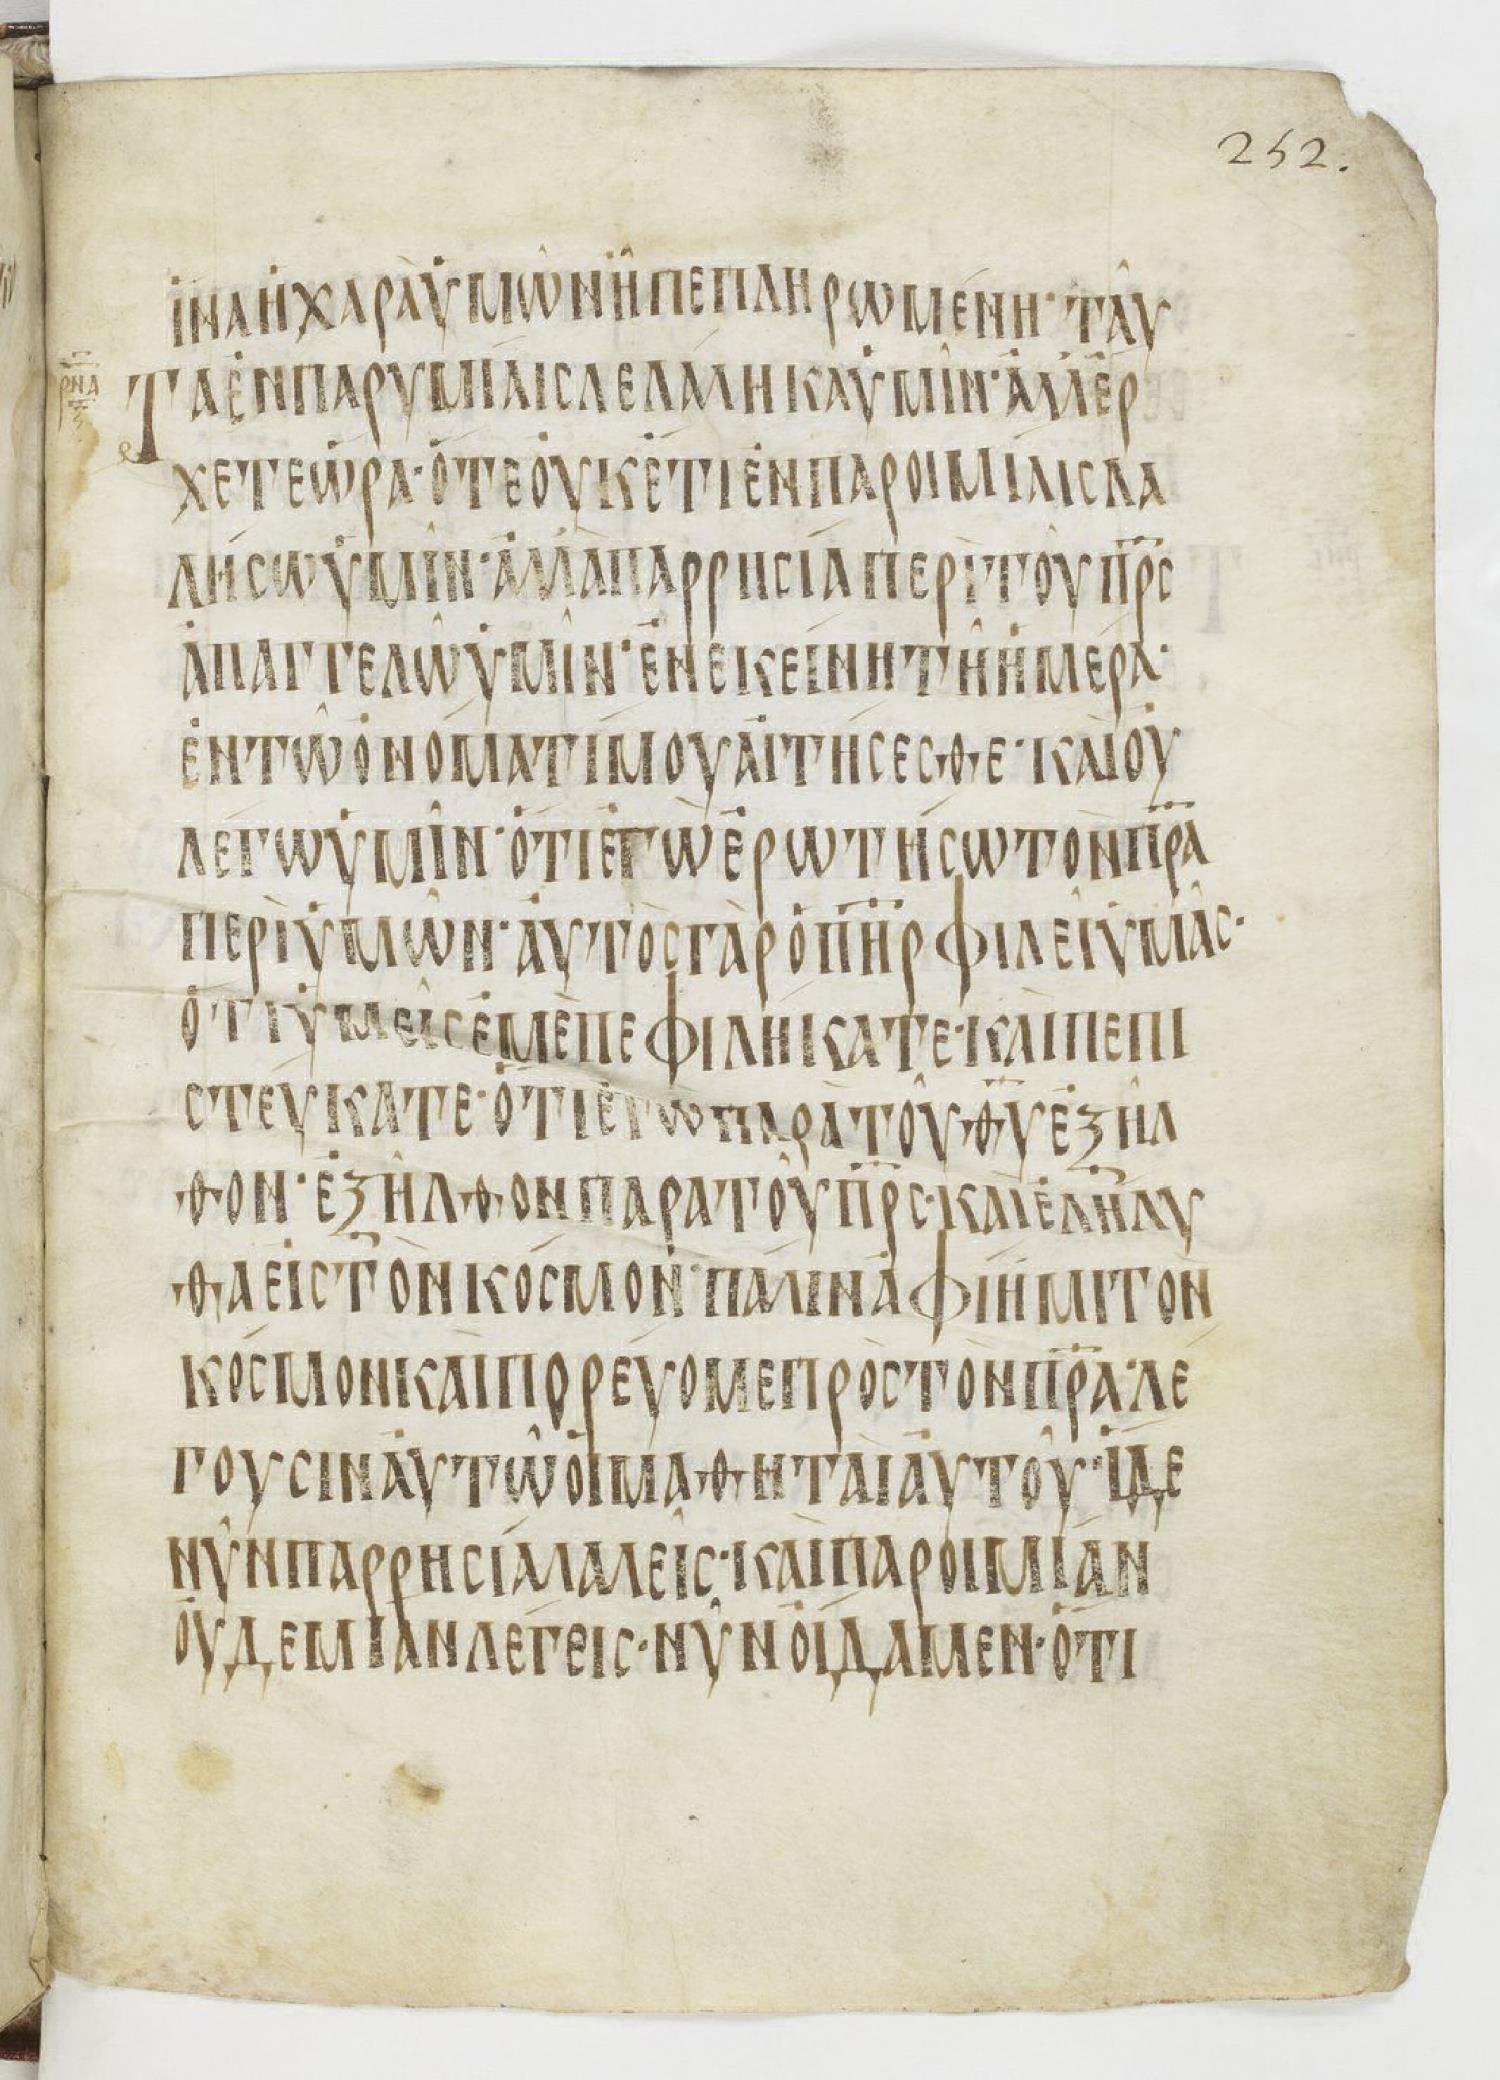 252.
ἵναἡχαρὰὑμῶνἦπεπληρωμένη·ταῦ
ρνα
Ταἐνπαρυμίαιςλελάληκαὑμῖν·ἀλλἔρ
χετεὥρα·ὅτεοὐκέτιἐνπαροιμίαιςλα
λήσωὑμῖν·ἀλλὰπαρρησίαπερὶτοῦπρς
ἀπαγγελῶὑμῖν·ἐνεκείνητῆἡμέρα·
ἐντῶὀνόματίμουἀιτήσεσθε·καὶοὐ
λέγωὑμῖν·ὅτιἐγὼἐρωτήσωτὸνπρα
περὶὑμῶν·ἀυτὸςγὰρὁπηρφιλεῖὑμᾶς·
ὅτιὑμεῖςἐμὲπεφιλήκατε·καὶπεπι
στεύκατε·ὅτιἐγὼπαρὰτοῦθυἐξῆλ
θον·ἐξῆλθονπαρατοῦπρς·καὶἐλήλυ
θαεἰςτὸνκόσμον·πάλινἀφίημιτὸν
κόσμονκαὶπορεύομεπρὸςτὸνπρα·λέ
γουσινἀυτῶὁιμαθηταὶἀυτοῦ·ἴδε
νῦνπαρρησίαλαλεῖς·καὶπαροιμίαν
ὀυδεμίανλέγεις·νῦνὀίδαμεν·ὅτι